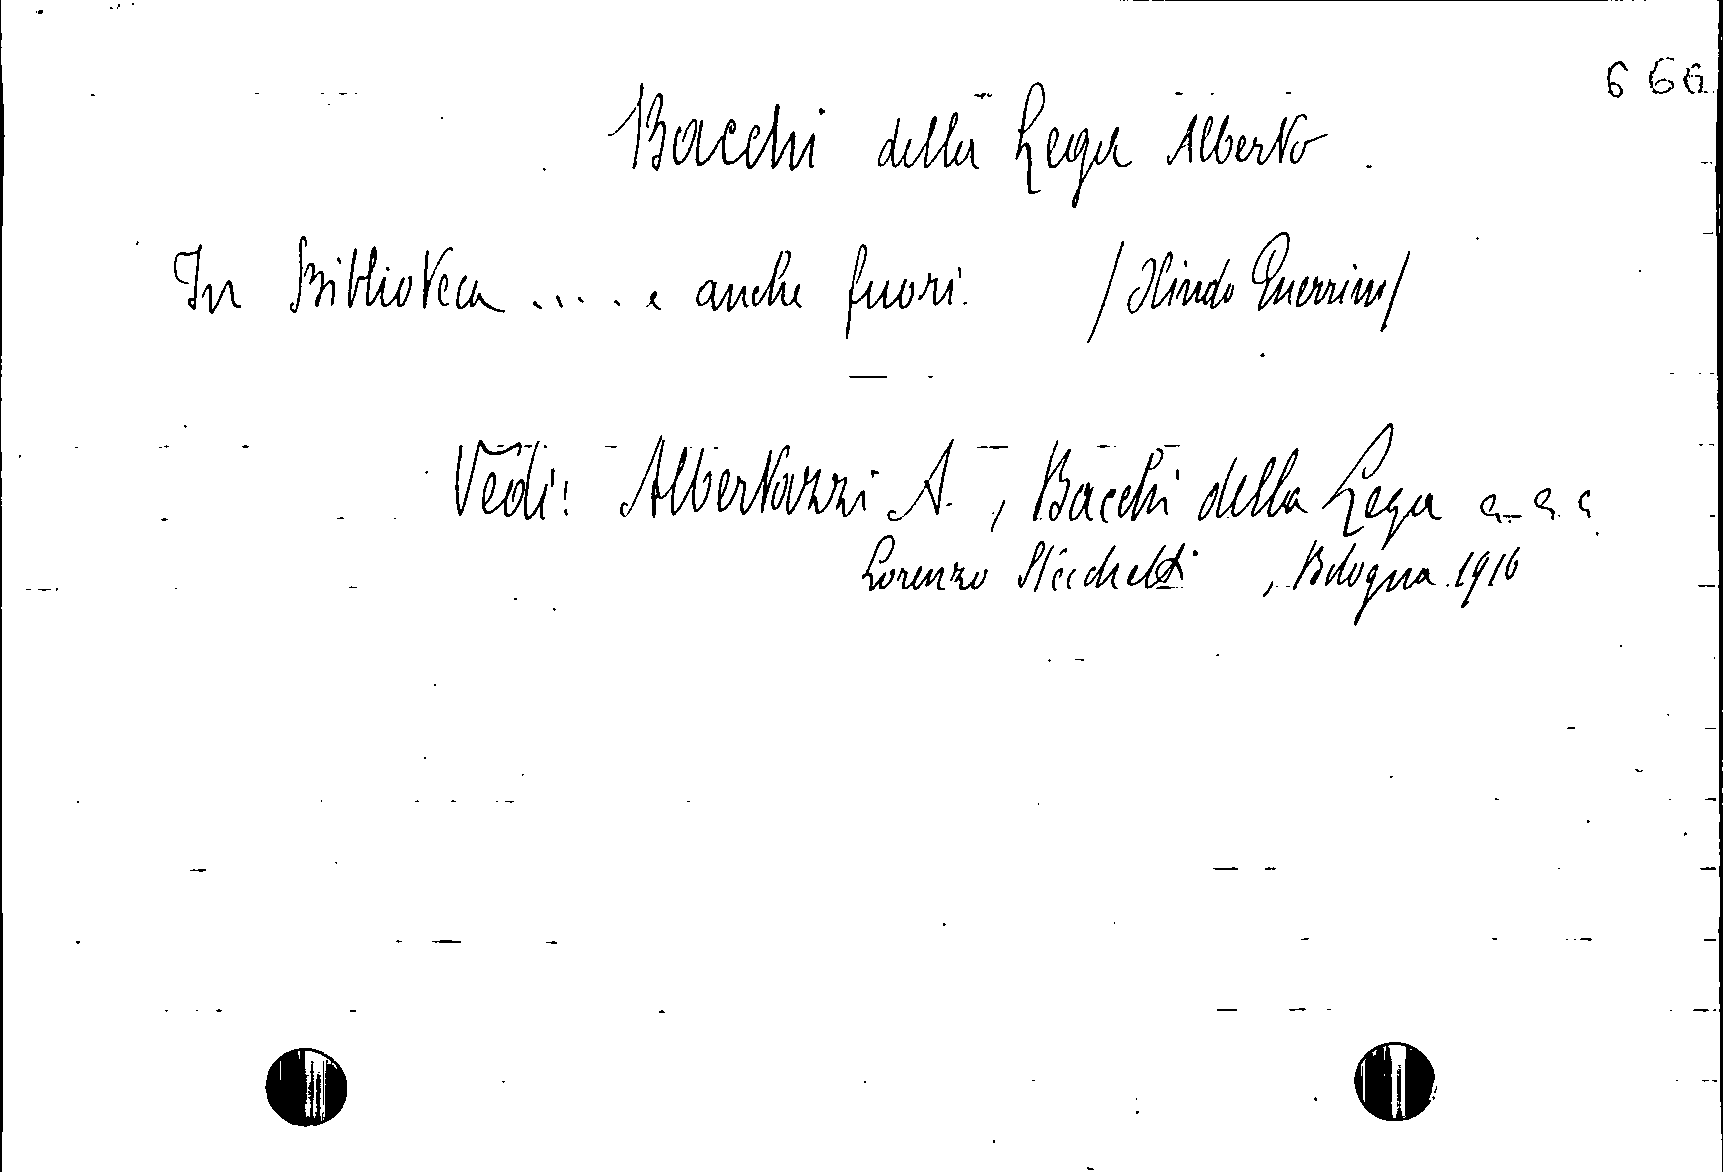 666
Bacchi della Lega Alberto
In Biblioteca ..... e anche fuori. /Olindo Guerrini/
Vedi: Albertazzi A., Bacchi della Lega e
Lorenzo Stecchetti, Bologna 1916